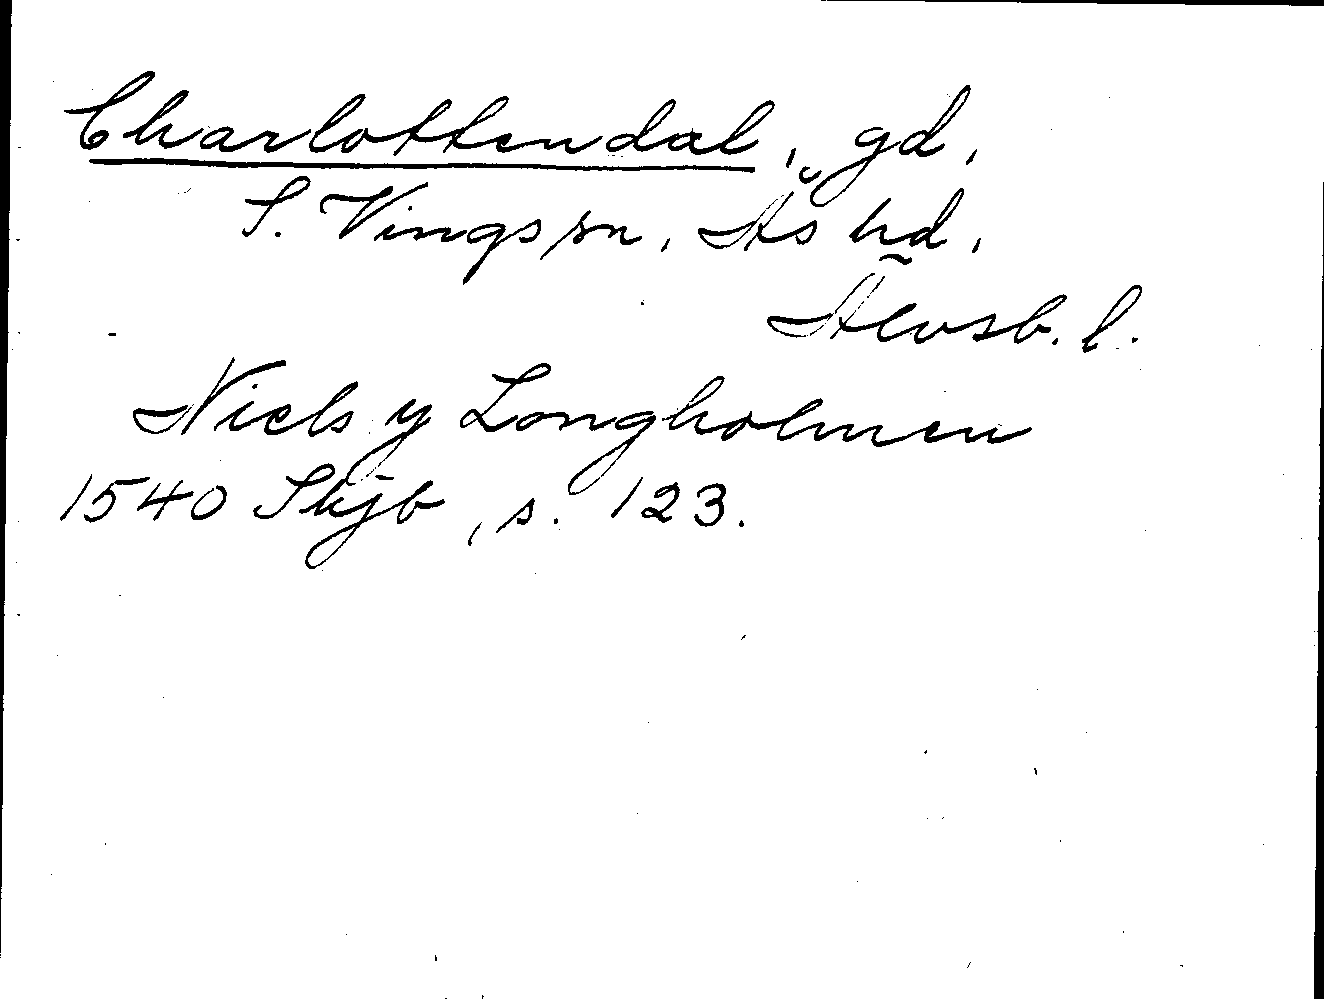 Charlottendal, gd,
S. Vings sn, Ås hd,
Älvsb. l.
Niels y Longholmen
1540 Skjb, s. 123.